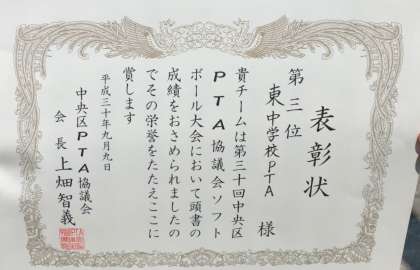 表彰状
第三位
東中学校PTA 様
貴チームは第三十回中央区
PTA協議会ソフト
ボール大会において頭書の
成績をおさめられましたの
でその栄誉をたたえここに
賞します
平成三十年九月九日
中央区PTA協議会
会長 上畑智義